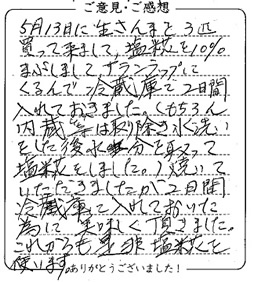 ご意見・ご感想
5月13日に生さんまを3匹
買って来まして、塩麹を10%
まぶしまして、サランラップに
くるんで、冷蔵庫で2日間
入れておきました。(もちろん
内蔵等は取り除き水洗い
をした後水分を取って
塩麹をしました。)焼いて
いただきましたが2日間
冷蔵庫に入れておいた
為に美味しく頂きました。
これからも是非塩麹を
使います。
ありがとうございました!